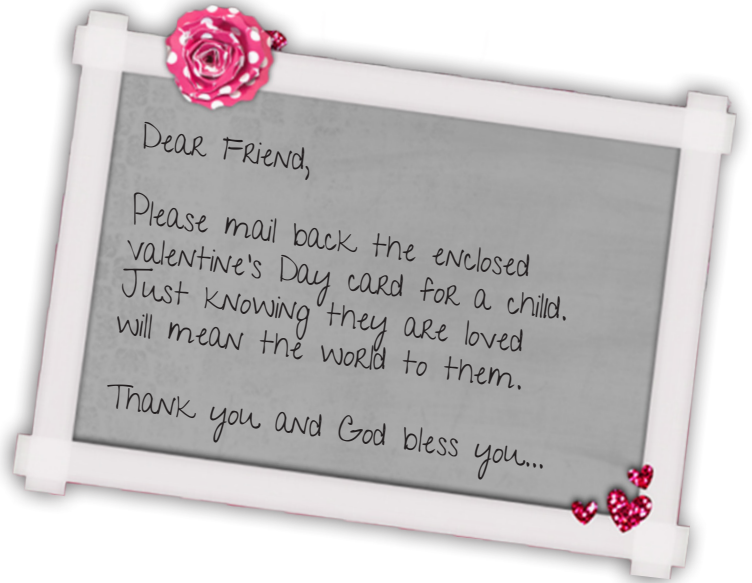 Dear Friend,
Please mail back the enclosed
Valentine's Day card for a child.
Just knowing they are loved
will mean the world to them.
Thank you and God bless you...